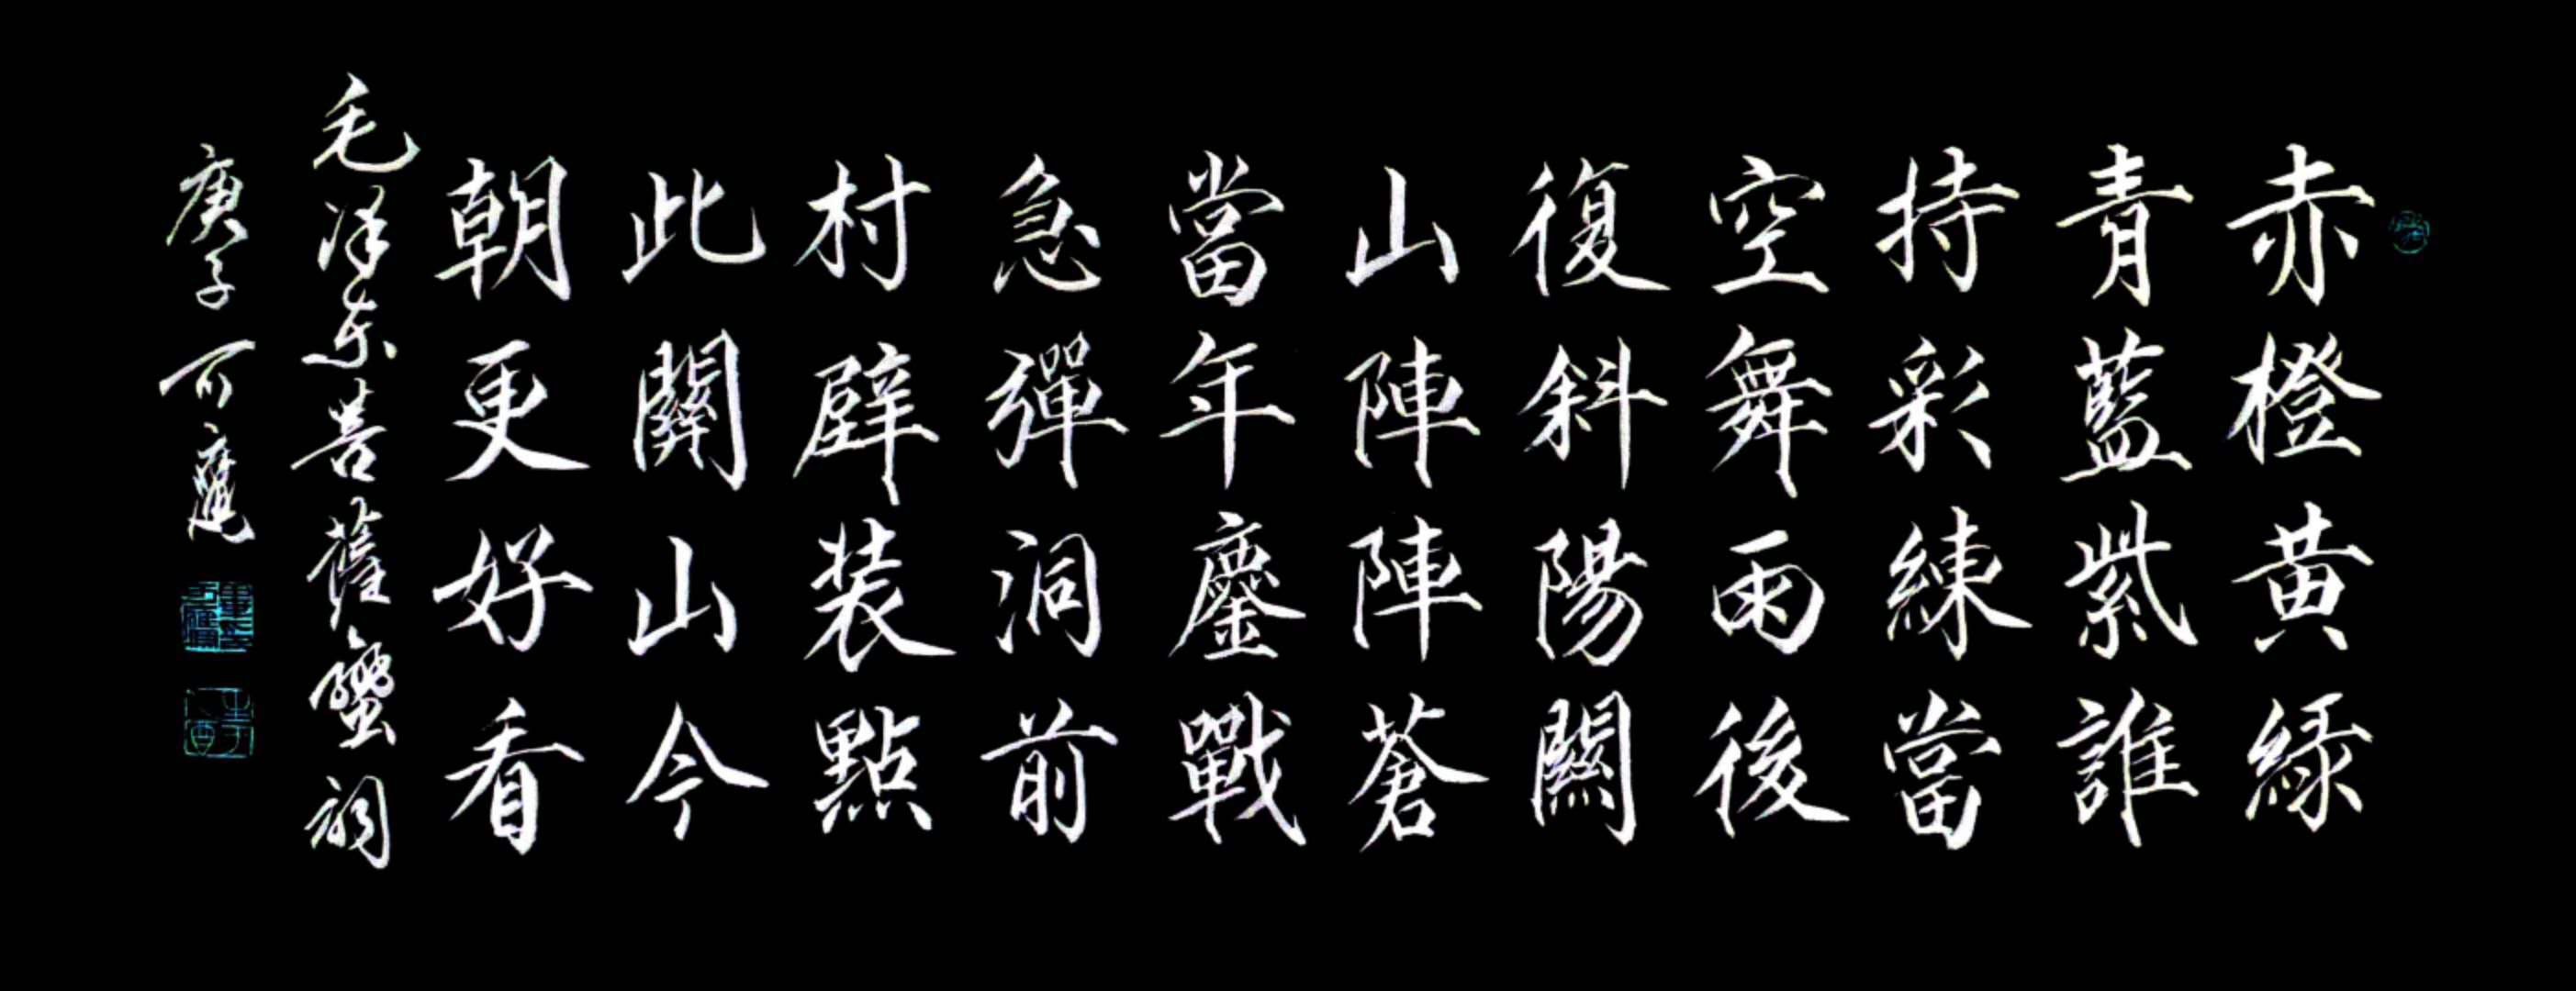 赤橙黄緑
青藍紫誰
持彩練當
空舞雨後
復斜陽關
山陣陣蒼
當年鏖戰
急彈洞前
村壁装點
此關山今
朝更好看
毛泽东菩薩蠻詞
庚子